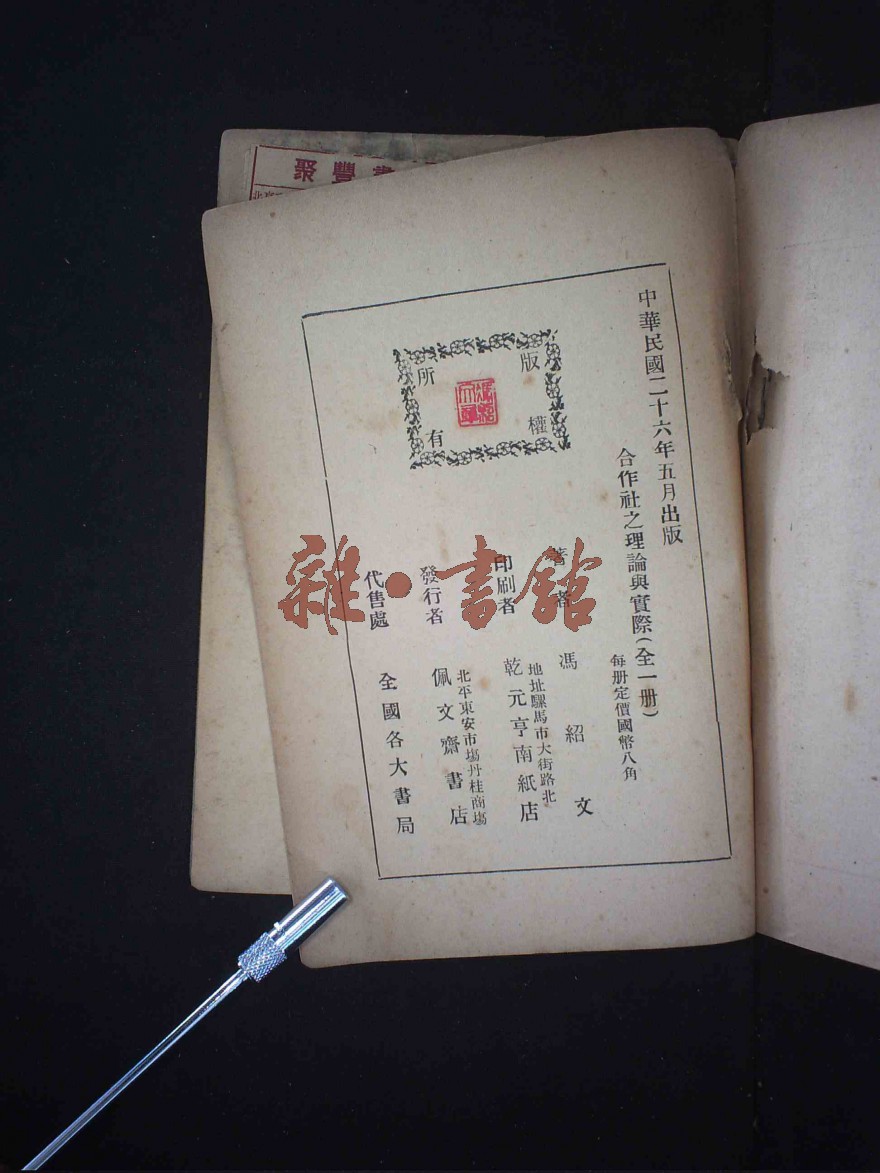 聚豐書
中華民國二十六年五月出版
合作社之理論與實際(全一册)
每册定價國幣八角
版權
所有
著者 馮紹文
印刷者 乾元亨南紙店
地址騾馬市大街路北
發行者 佩文齋書店
北平東安市場丹桂商場
代售處 全國各大書局
雜·書舘